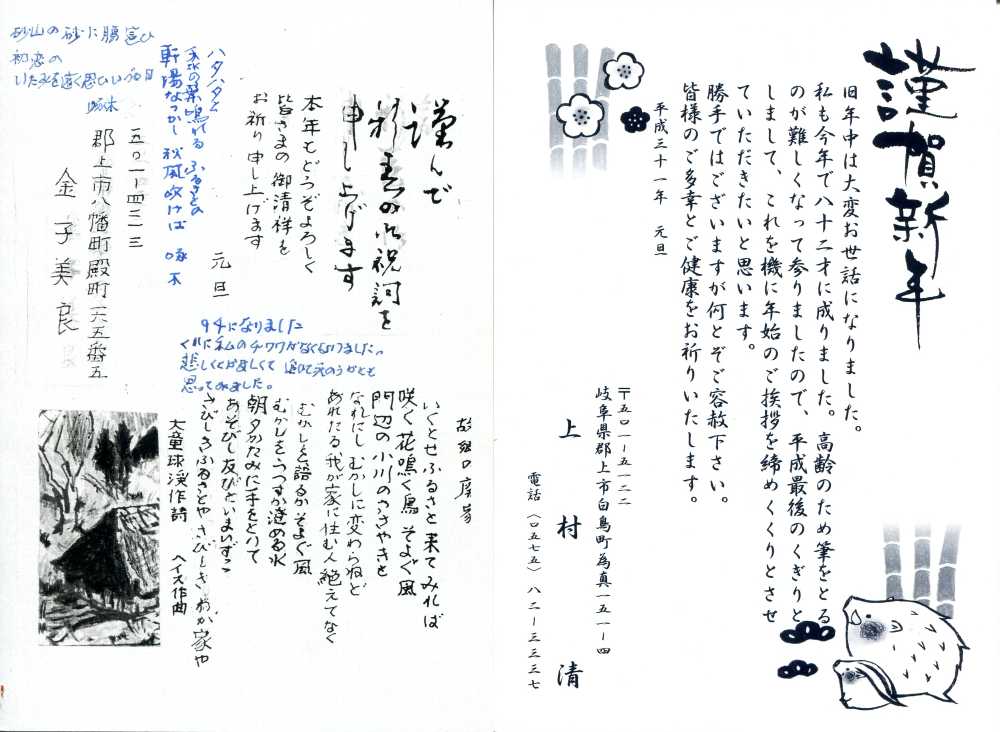 謹賀新年
旧年中は大変お世話になりました。
私も今年で八十二才に成りました。高齢のため筆をとる
のが難しくなって参りましたので、平成最後のくぎりと
しまして、これを機に年始のご挨拶を締めくくりとさせ
ていただきたいと思います。
勝手ではございますが何とぞご容赦下さい。
皆様のご多幸とご健康をお祈りいたします。
平成三十一年 元旦
〒五〇一ー五一二二
岐阜県郡上市白鳥町為真一五一ー四
上村 清
電話(〇五七五)八二ー三三三七
謹んで
新春の御祝詞を
申し上げます
本年もどうぞよろしく
皆さまの御清祥を
お祈り申し上げます
元旦
ハタハタと
の葉鳴れる ふるさとの
軒場なつかし 秋風吹けば 啄木
砂山の砂に腹這ひ
初恋の
いたみを遠く思ひいづる日
啄木
五〇一ー四二一三
郡上市八幡町殿町一六五番五
金子美良
94になりました
私のチワワがなくなりました。
悲しくて
思ってみました。
故郷の廃家
いくとせふるさと来てみれば
咲く花鳴く鳥そよぐ風
門辺の小川のささやきも
なれにしむかしに変わらねど
あれたる我が家に住む人絶えてなく
むかしを語るかそよぐ風
むかしをうつすか澄める水
朝夕かたみに手をとりて
あそびし友びといまいずこ
さびしきふるさとや さびしき わが家や
犬童球渓作詩 ヘイス作曲